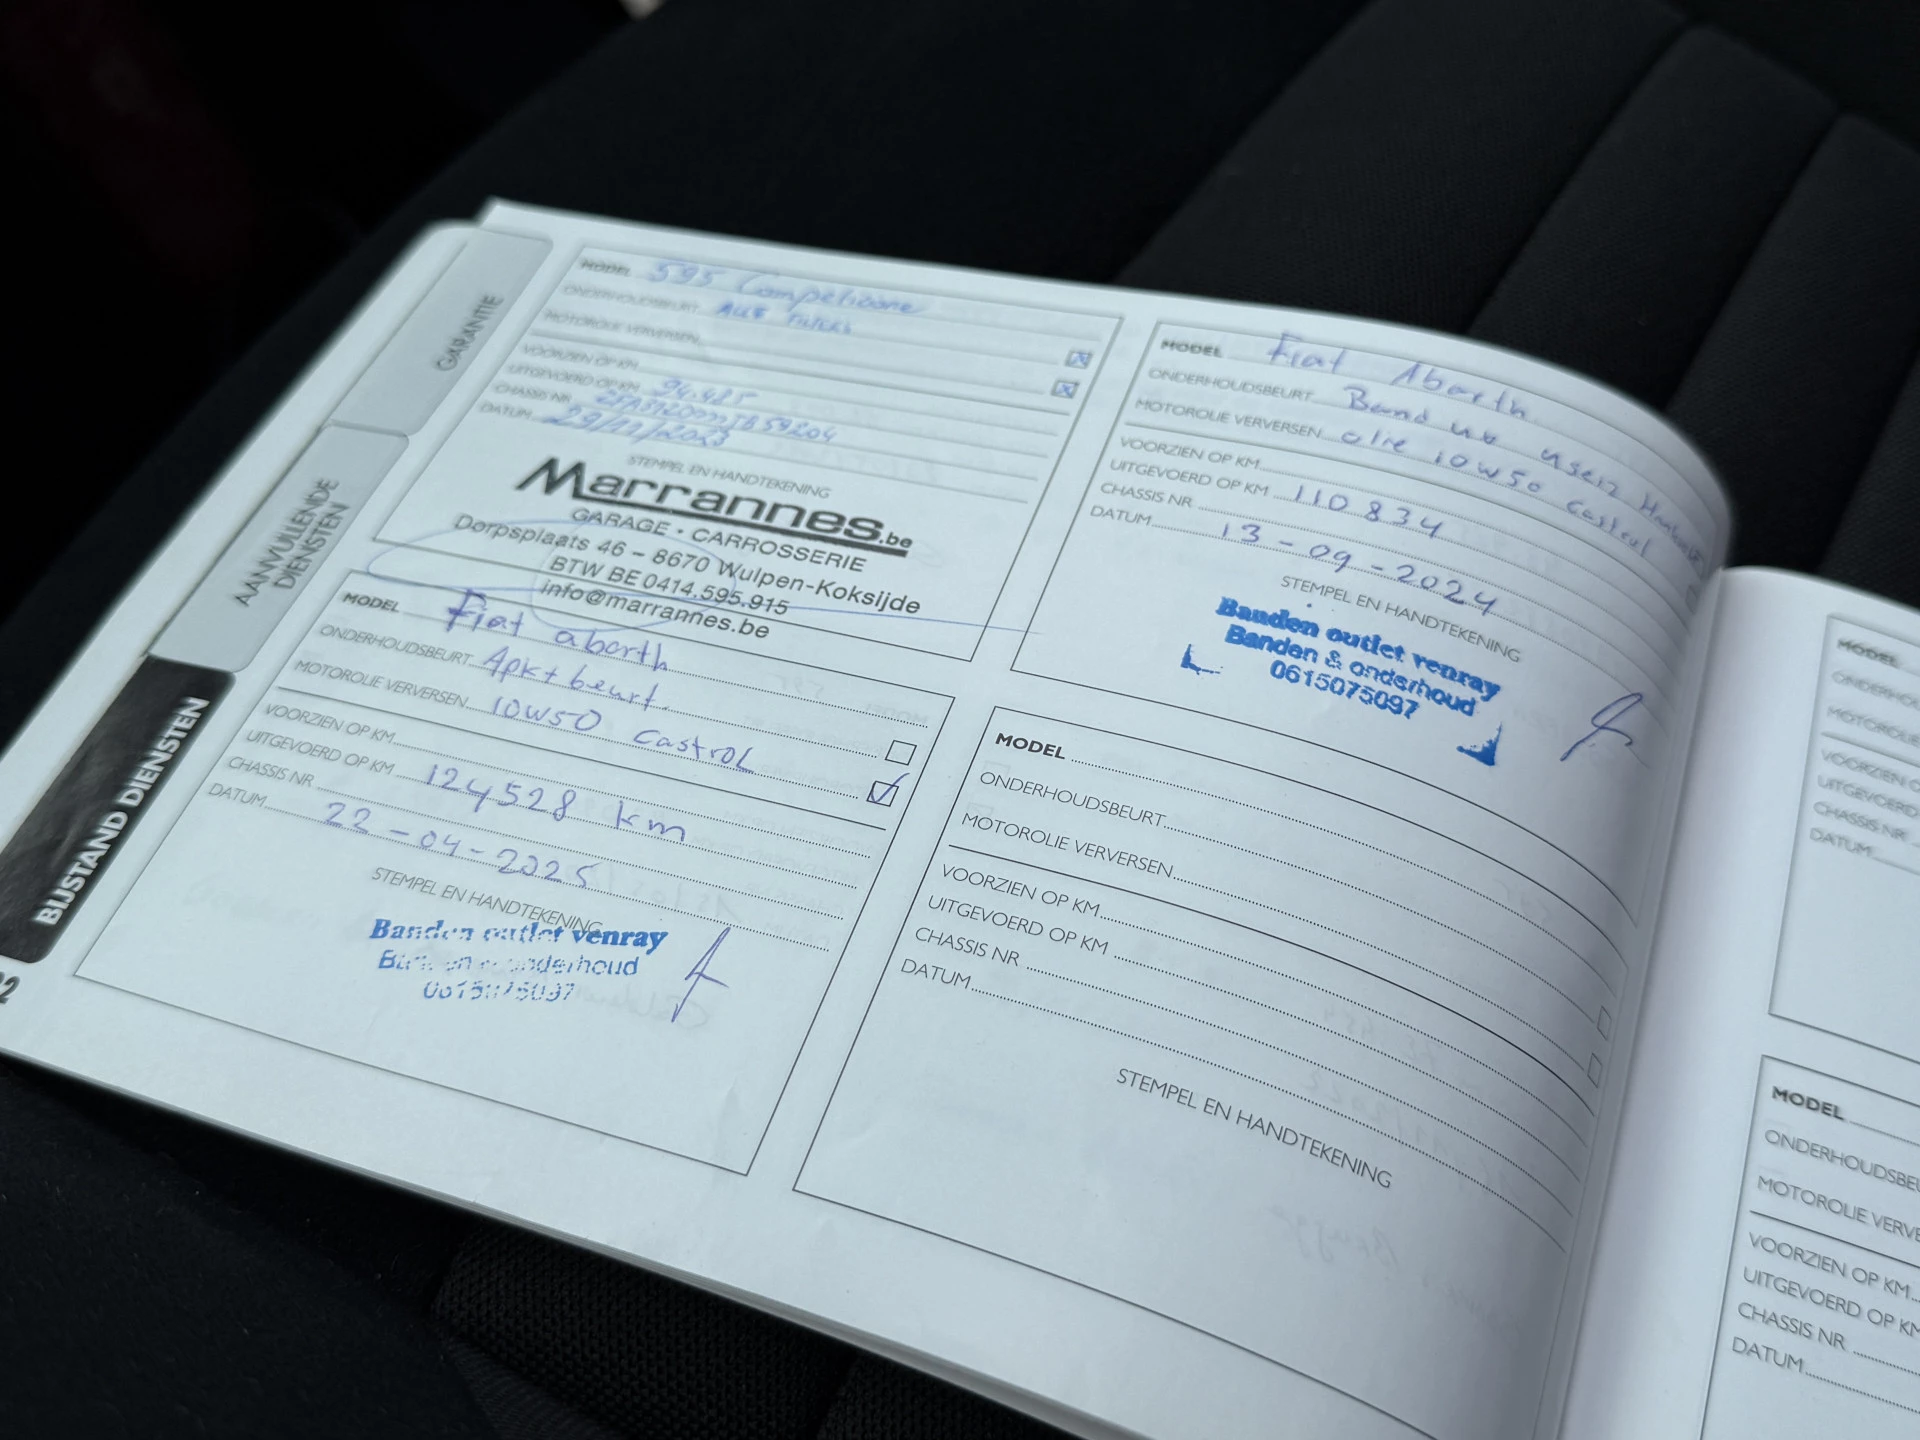 GARANTIE
AANVULLENDE
DIENSTEN
BIJSTAND DIENSTEN
MODEL 595 Competizione
ONDERHOUDSBEURT ALLE FILTERS
MOTOROLIE VERVERSEN
VOORZIEN OP KM
UITGEVOERD OP KM 94.485
CHASSIS NR
DATUM 29/11/2023
STEMPEL EN HANDTEKENING
Marrannes.be
GARAGE • CARROSSERIE
Dorpsplaats 46 – 8670 Wulpen-Koksijde
BTW BE 0414.595.915
info@marrannes.be
MODEL Fiat Abarth
ONDERHOUDSBEURT Band
MOTOROLIE VERVERSEN olie 10W50 castrol
VOORZIEN OP KM
UITGEVOERD OP KM 110834
CHASSIS NR
DATUM 13-09-2024
STEMPEL EN HANDTEKENING
Banden outlet venray
Banden & onderhoud
0615075097
MODEL Fiat abarth
ONDERHOUDSBEURT Apk+beurt.
MOTOROLIE VERVERSEN 10W50 castrol
VOORZIEN OP KM
UITGEVOERD OP KM 124528 km
CHASSIS NR
DATUM 22-04-2025
STEMPEL EN HANDTEKENING
Banden outlet venray
Banden & onderhoud
0615075097
MODEL
ONDERHOUDSBEURT
MOTOROLIE VERVERSEN
VOORZIEN OP KM
UITGEVOERD OP KM
CHASSIS NR
DATUM
STEMPEL EN HANDTEKENING
MODEL
MOTOROLIE
VOORZIEN
UITGEVOERD
CHASSIS NR
DATUM
MODEL
MOTOROLIE
VOORZIEN OP KM
UITGEVOERD OP KM
CHASSIS NR
DATUM